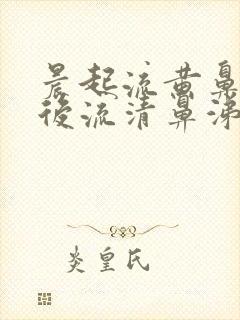 晨起流黄鼻
後流清鼻涕
炎皇氏